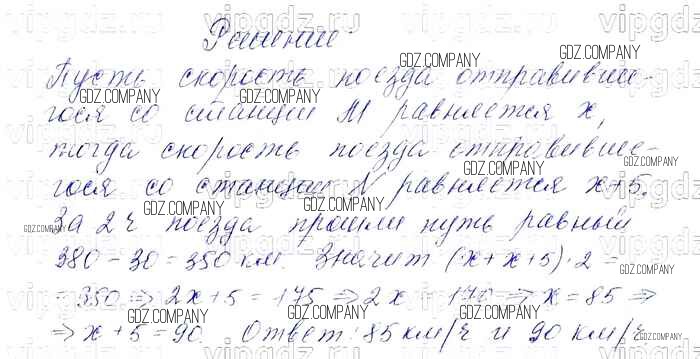 Решение
Пусть скорость поезда отправивше-
гося со станции M равняется x,
тогда скорость поезда отправивше-
гося со станции N равняется x+5.
За 2 ч поезда прошли путь равный
380 - 30 = 350 км. Значит (x+x+5)·2 =
= 350 => 2x+5 = 175 => 2x = 170 => x = 85 =>
=> x + 5 = 90. Ответ: 85 км/ч и 90 км/ч.
GDZ.COMPANY
vipgdz.ru